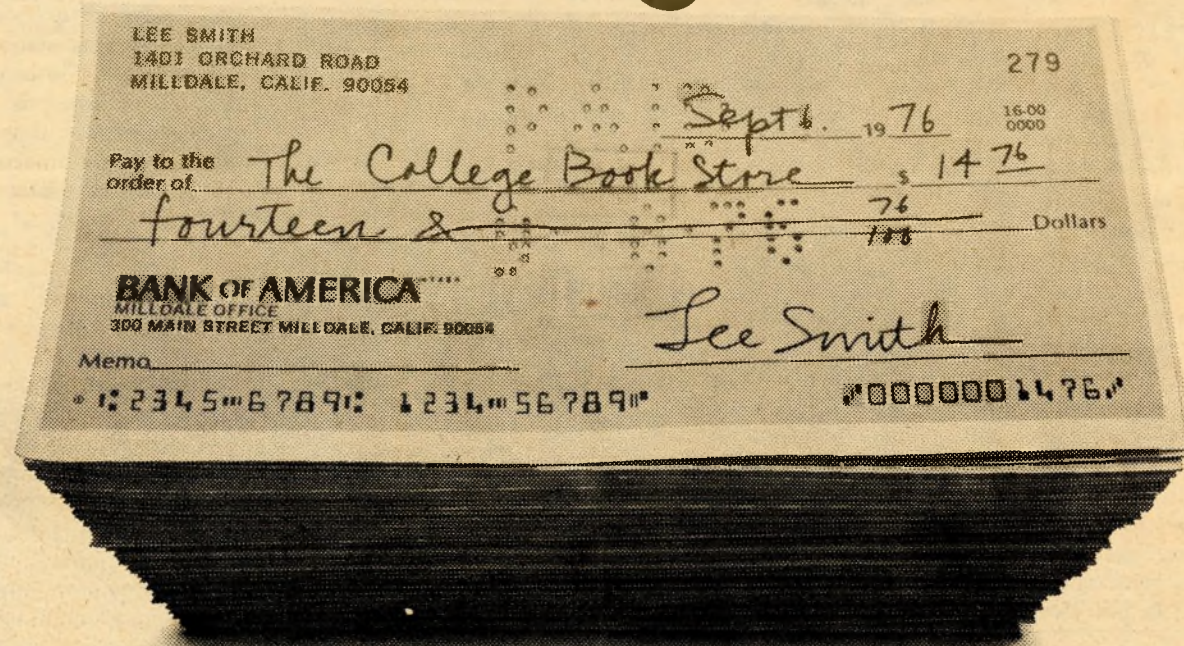 LEE SMITH
1401 ORCHARD ROAD
MILLDALE, CALIF. 90054
279
Sept 6. 1976
16-00
0000
Pay to the
order of The College Book Store $ 14 76
fourteen & 76/100 Dollars
BANK OF AMERICA
MILLDALE OFFICE
300 MAIN STREET MILLDALE, CALIF. 90054
Lee Smith
Memo
⑆2345⑉6789⑆ 1234⑉56789⑈ ⑈0000001476⑈